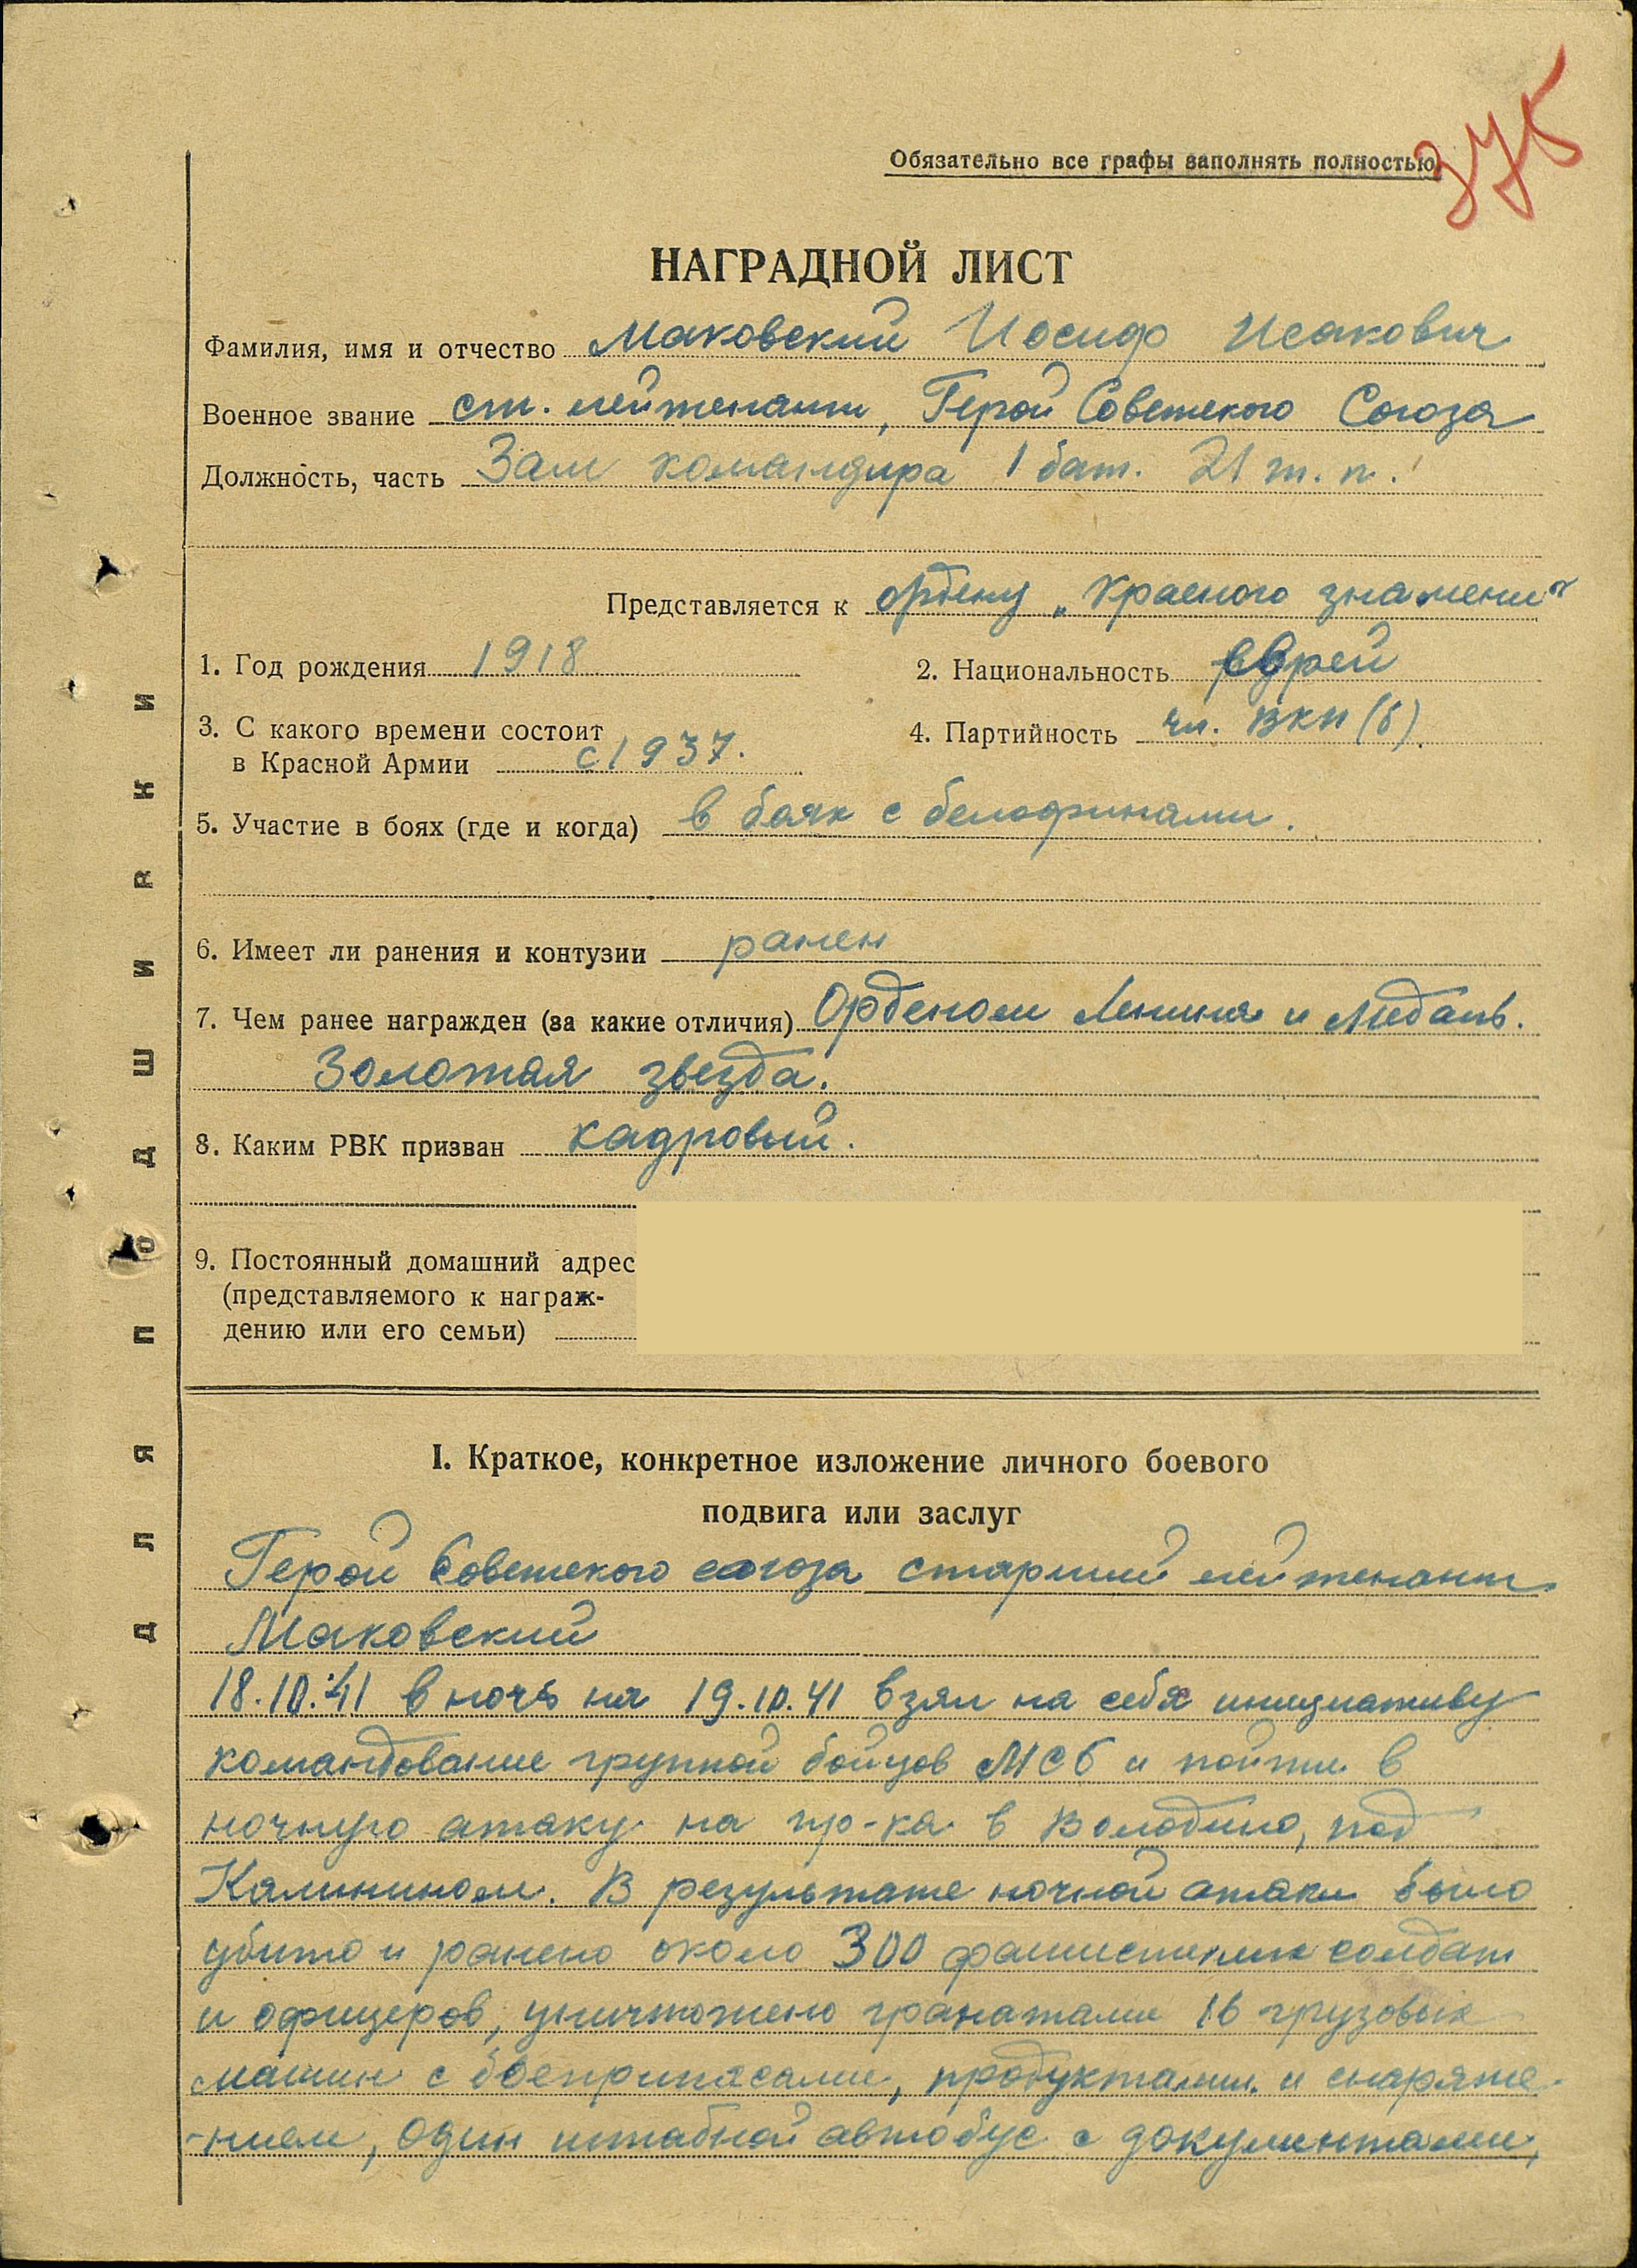 375
Обязательно все графы заполнять полностью
НАГРАДНОЙ ЛИСТ
Фамилия, имя и отчество Маковский Иосиф Исакович
Военное звание ст. лейтенант, Герой Советского Союза
Должность, часть Зам командира 1 бат. 21 т. п.
Представляется к ордену „Красного знамени“
1. Год рождения 1918
2. Национальность еврей
3. С какого времени состоит
в Красной Армии с 1937.
4. Партийность чл. ВКП(б)
5. Участие в боях (где и когда) в боях с белофинами.
6. Имеет ли ранения и контузии ранен
7. Чем ранее награжден (за какие отличия) Орденом Ленина и Медаль.
Золотая звезда.
8. Каким РВК призван кадровый.
9. Постоянный домашний адрес
(представляемого к награж-
дению или его семьи)
I. Краткое, конкретное изложение личного боевого
подвига или заслуг
Герой Советского союза старший лейтенант
Маковский
18.10.41 в ночь на 19.10.41 взял на себя инициативу
командование группой бойцов МСБ и пойти в
ночную атаку на пр-ка в Володино, под
Калинином. В результате ночной атаки было
убито и ранено около 300 фашистких солдат
и офицеров, уничтожено гранатами 16 грузовых
машин с боеприпасами, продуктами и снаряже-
-нием, один штабной автобус с документами,
ДЛЯ ПОДШИВКИ